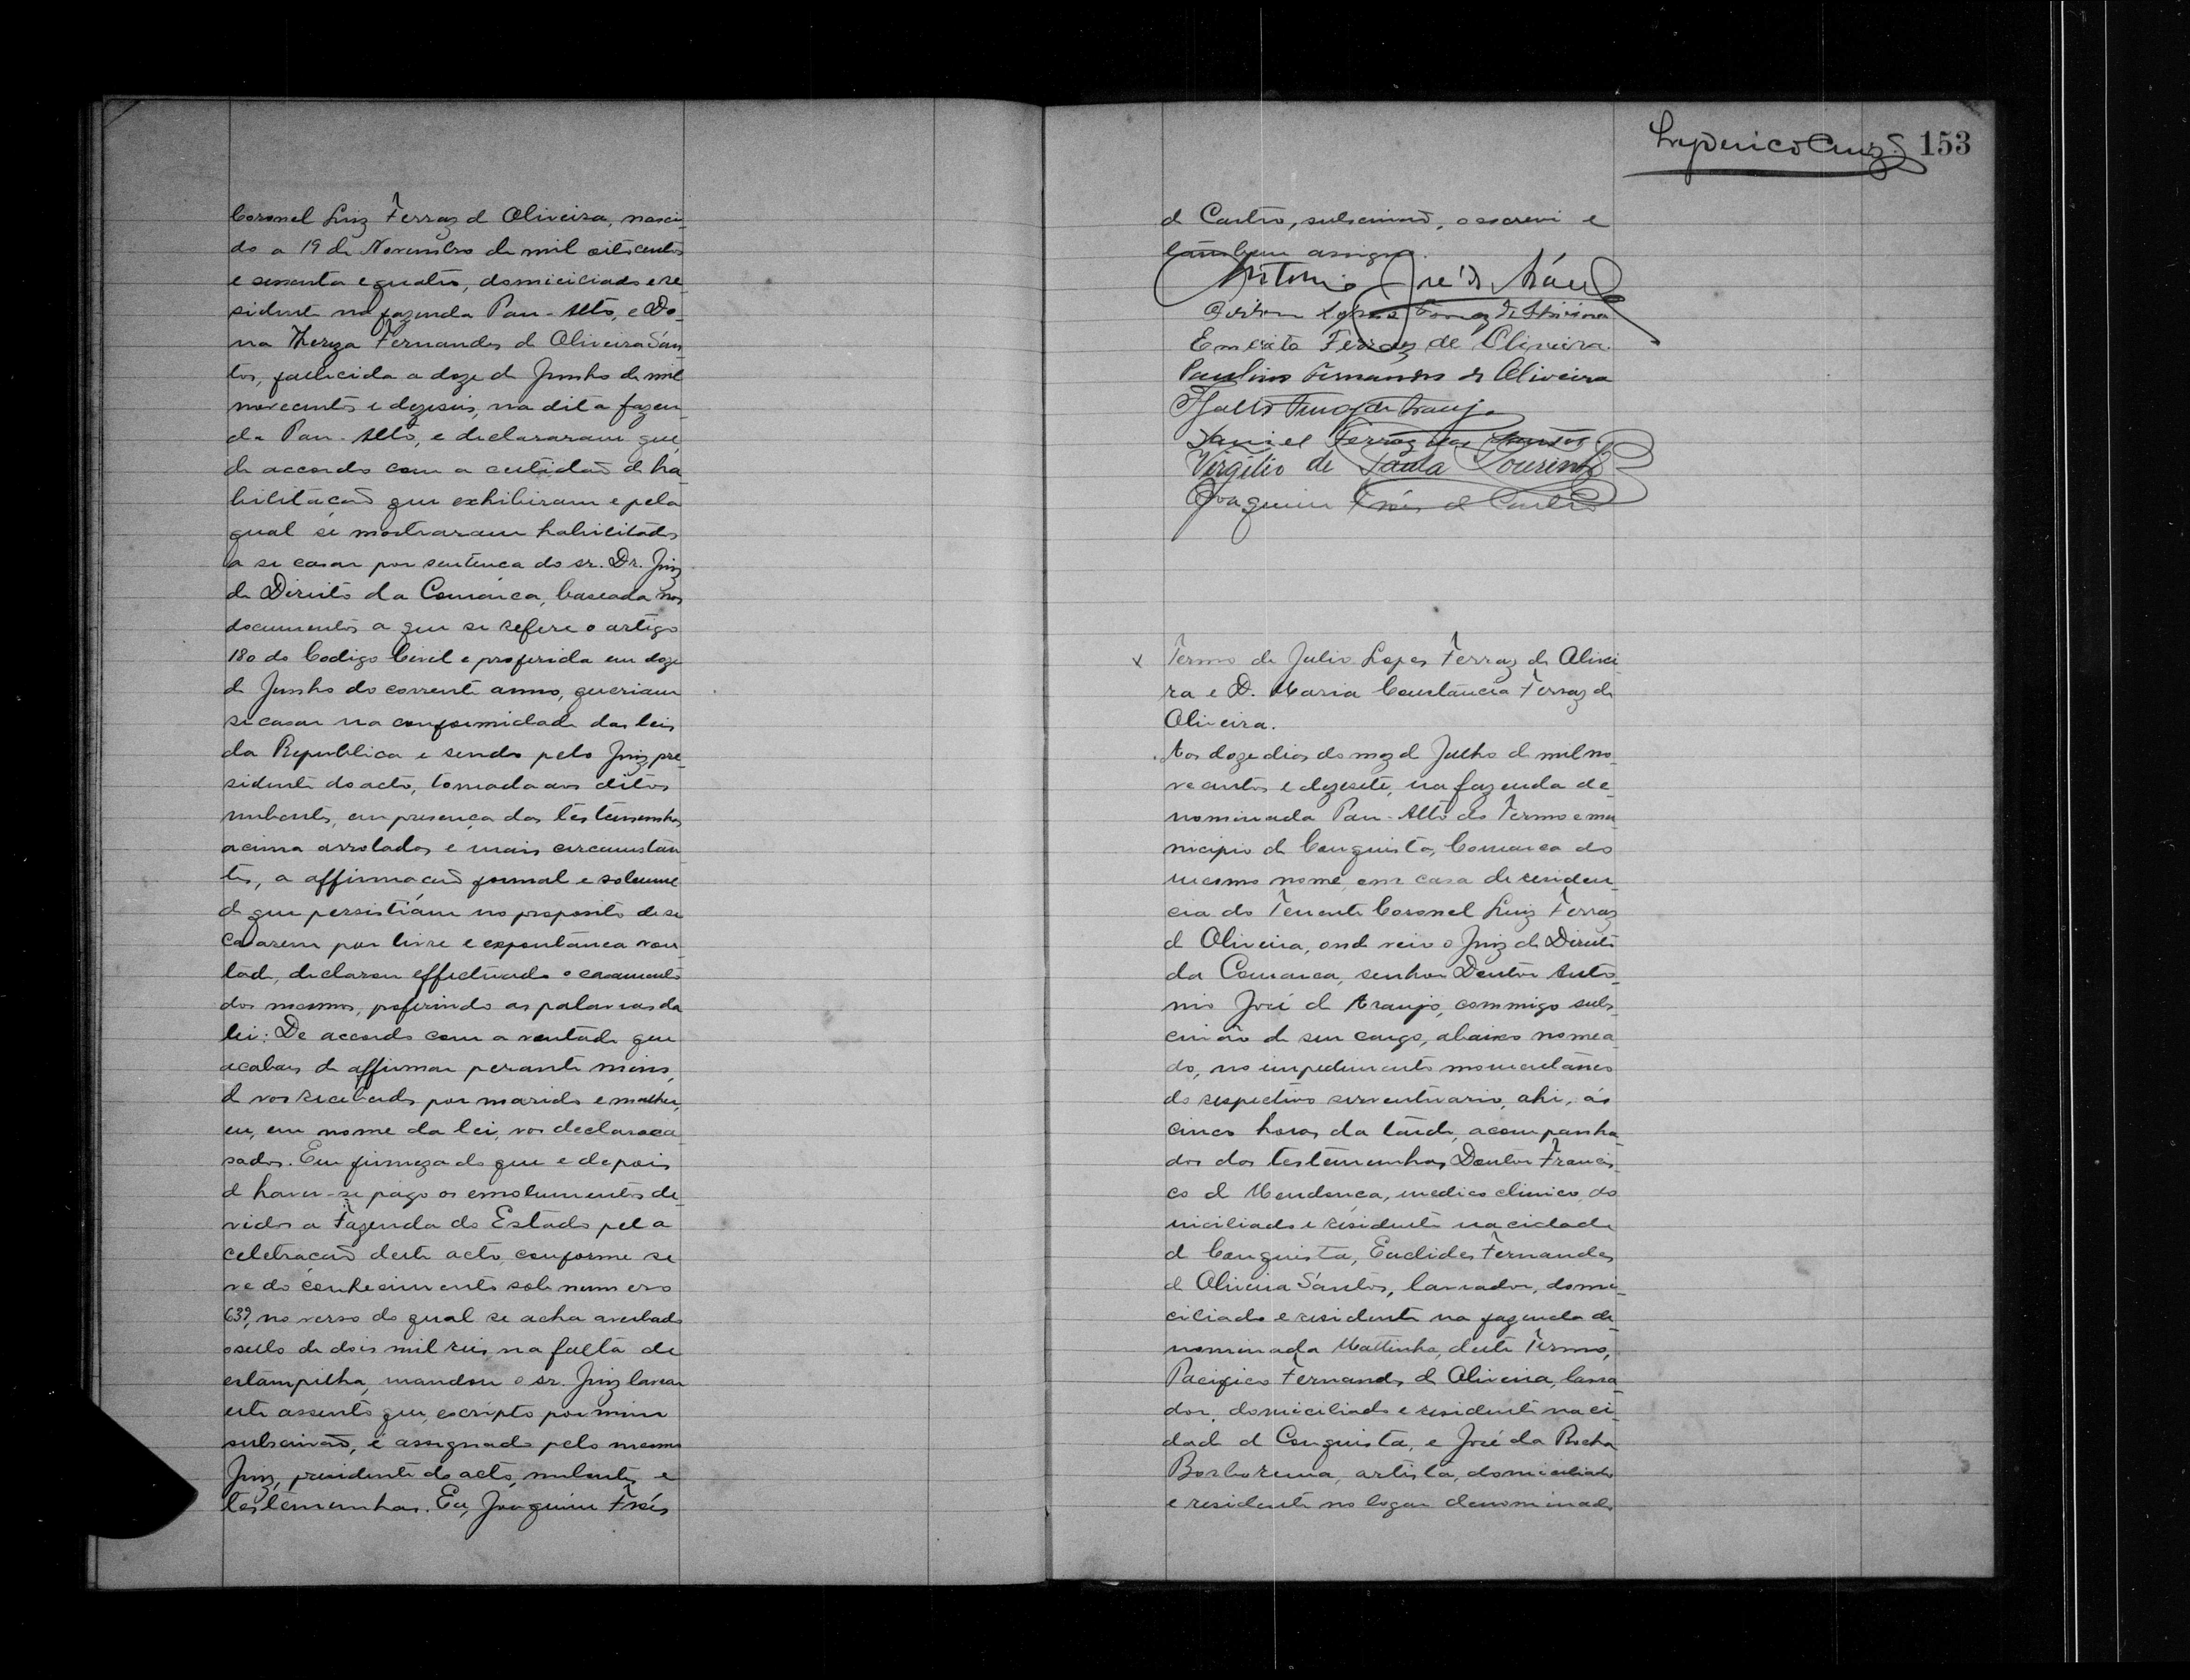 Coronel Luiz Ferraz d Oliveira, nasci-
do a 19 de Novembro de mil oitocentos
e sessenta e quatro, domiciciado e re-
sidente na fazenda Pau-Alto, e Do-
na Thereza Fernandes d Oliveira San-
tos, fallecida a doze de Junho de mil
novecentos e dezeseis, na dita fazen-
da Pau-Alto, e declararam que
de accordo com a certidaõ d ha-
bilitaçaõ que exhibiram e pela
qual se mostraram habilitados
a se casar por sentença do sr. Dr. Juiz
de Direito da Comarca, baseada nos
documentos a que se refere o artigo
180 do Codigo Civil e proferida em doze
de Junho do corrente anno, queriam
se casar na conformidade das leis
da Republica e sendo pelo Juiz pre-
sidente do acto, tomada aos ditos
nubentes, em presença das testemunhas
acima arroladas e mais circumstan-
tes, a affirmaçaõ formal e solemne
d que persistiam no proposito de se
casarem por livre e expontanea von-
tade, declarou effectuado o casamento
dos mesmos, proferindo as palavras da
lei: De accordo com a vontade que
acabaes de affirmar perante mim,
d vos receberdes por marido e mulher,
eu, em nome da lei, vos declaro ca-
sados. Em firmeza do que e depois
d haver-se pago os emolumentos de-
vidos a Fazenda do Estado pela
celebraçaõ deste acto, conforme se
ve do conhecimento sob numero
639, no verso do qual se acha averbado
o sello de dois mil reis, na falta de
estampilha, mandou o sr. Juiz lavrar
este assento que, escripto por mim
subescrivaõ, é assignado pelo mesmo
Juiz, presidente do acto, nubentes e
testemunhas. Eu, Joaquim Fróes
153
d Castro, subescrivaõ, o escrevi e
tambem assigno.
Antonio José d Araujo
Lopes Ferraz de Oliveira
Emerita Ferraz de Oliveira.
Paulino Fernandes de Oliveira
Daniel Ferraz dos Santos
Virgilio de Paula Lourenço
Joaquim Fróes d Castro
x Termo de Julio Lopes Ferraz de Olivei-
ra e D. Maria Constancia Ferraz de
Oliveira.
Aos doze dias do mez d Julho d mil no-
vecentos e dezesete, na fazenda de-
nominada Pau-Alto do Termo e mu-
nicipio d Conquista, Comarca do
mesmo nome, em casa de residen-
cia do Tenente Coronel Luiz Ferraz
d Oliveira, onde veio o Juiz de Direito
da Comarca, senhor Doutor Anto-
nio José d Araujo, commigo subes-
crivaõ de seu cargo, abaixo nomea-
do, no impedimento momentaneo
do respectivo serventuario, ahi, ás
cinco horas da tarde, acompanha-
dos das testemunhas Doutor Francis-
co d Mendonca, medico clinico, do-
miciliado e residente na cidade
d Conquista, Euclides Fernandes
d Oliveira Santos, lavrador, domi-
ciliado e residente na fazenda de-
nominada Mattinha, deste Termo,
Pacifico Fernandes d Oliveira, lavra-
dor, domiciliado e residente na ci-
dade d Conquista, e José da Rocha
Borborema, artista, domiciliado
e residente no logar denominado